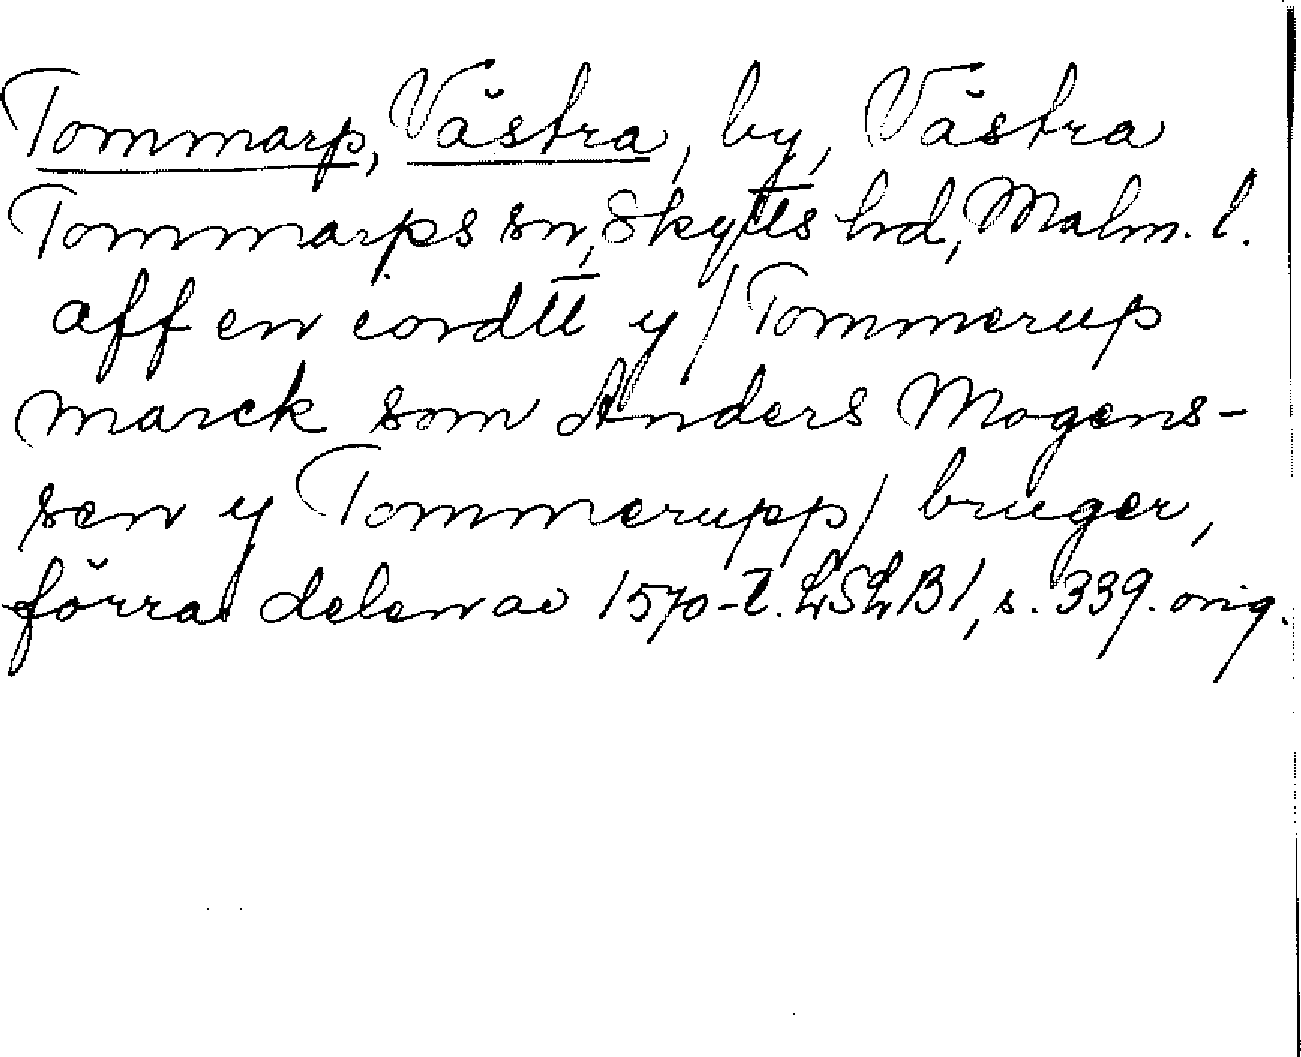 Tommarp, Västra, by, Västra
Tommarps sn, Skytts hd, Malm. l.
aff en iordtt y / Tommerup
marck som Anders Mogens-
sen y Tommerupp / bruger,
förra delen av 1570-t. LSLB 1, s. 339. orig.